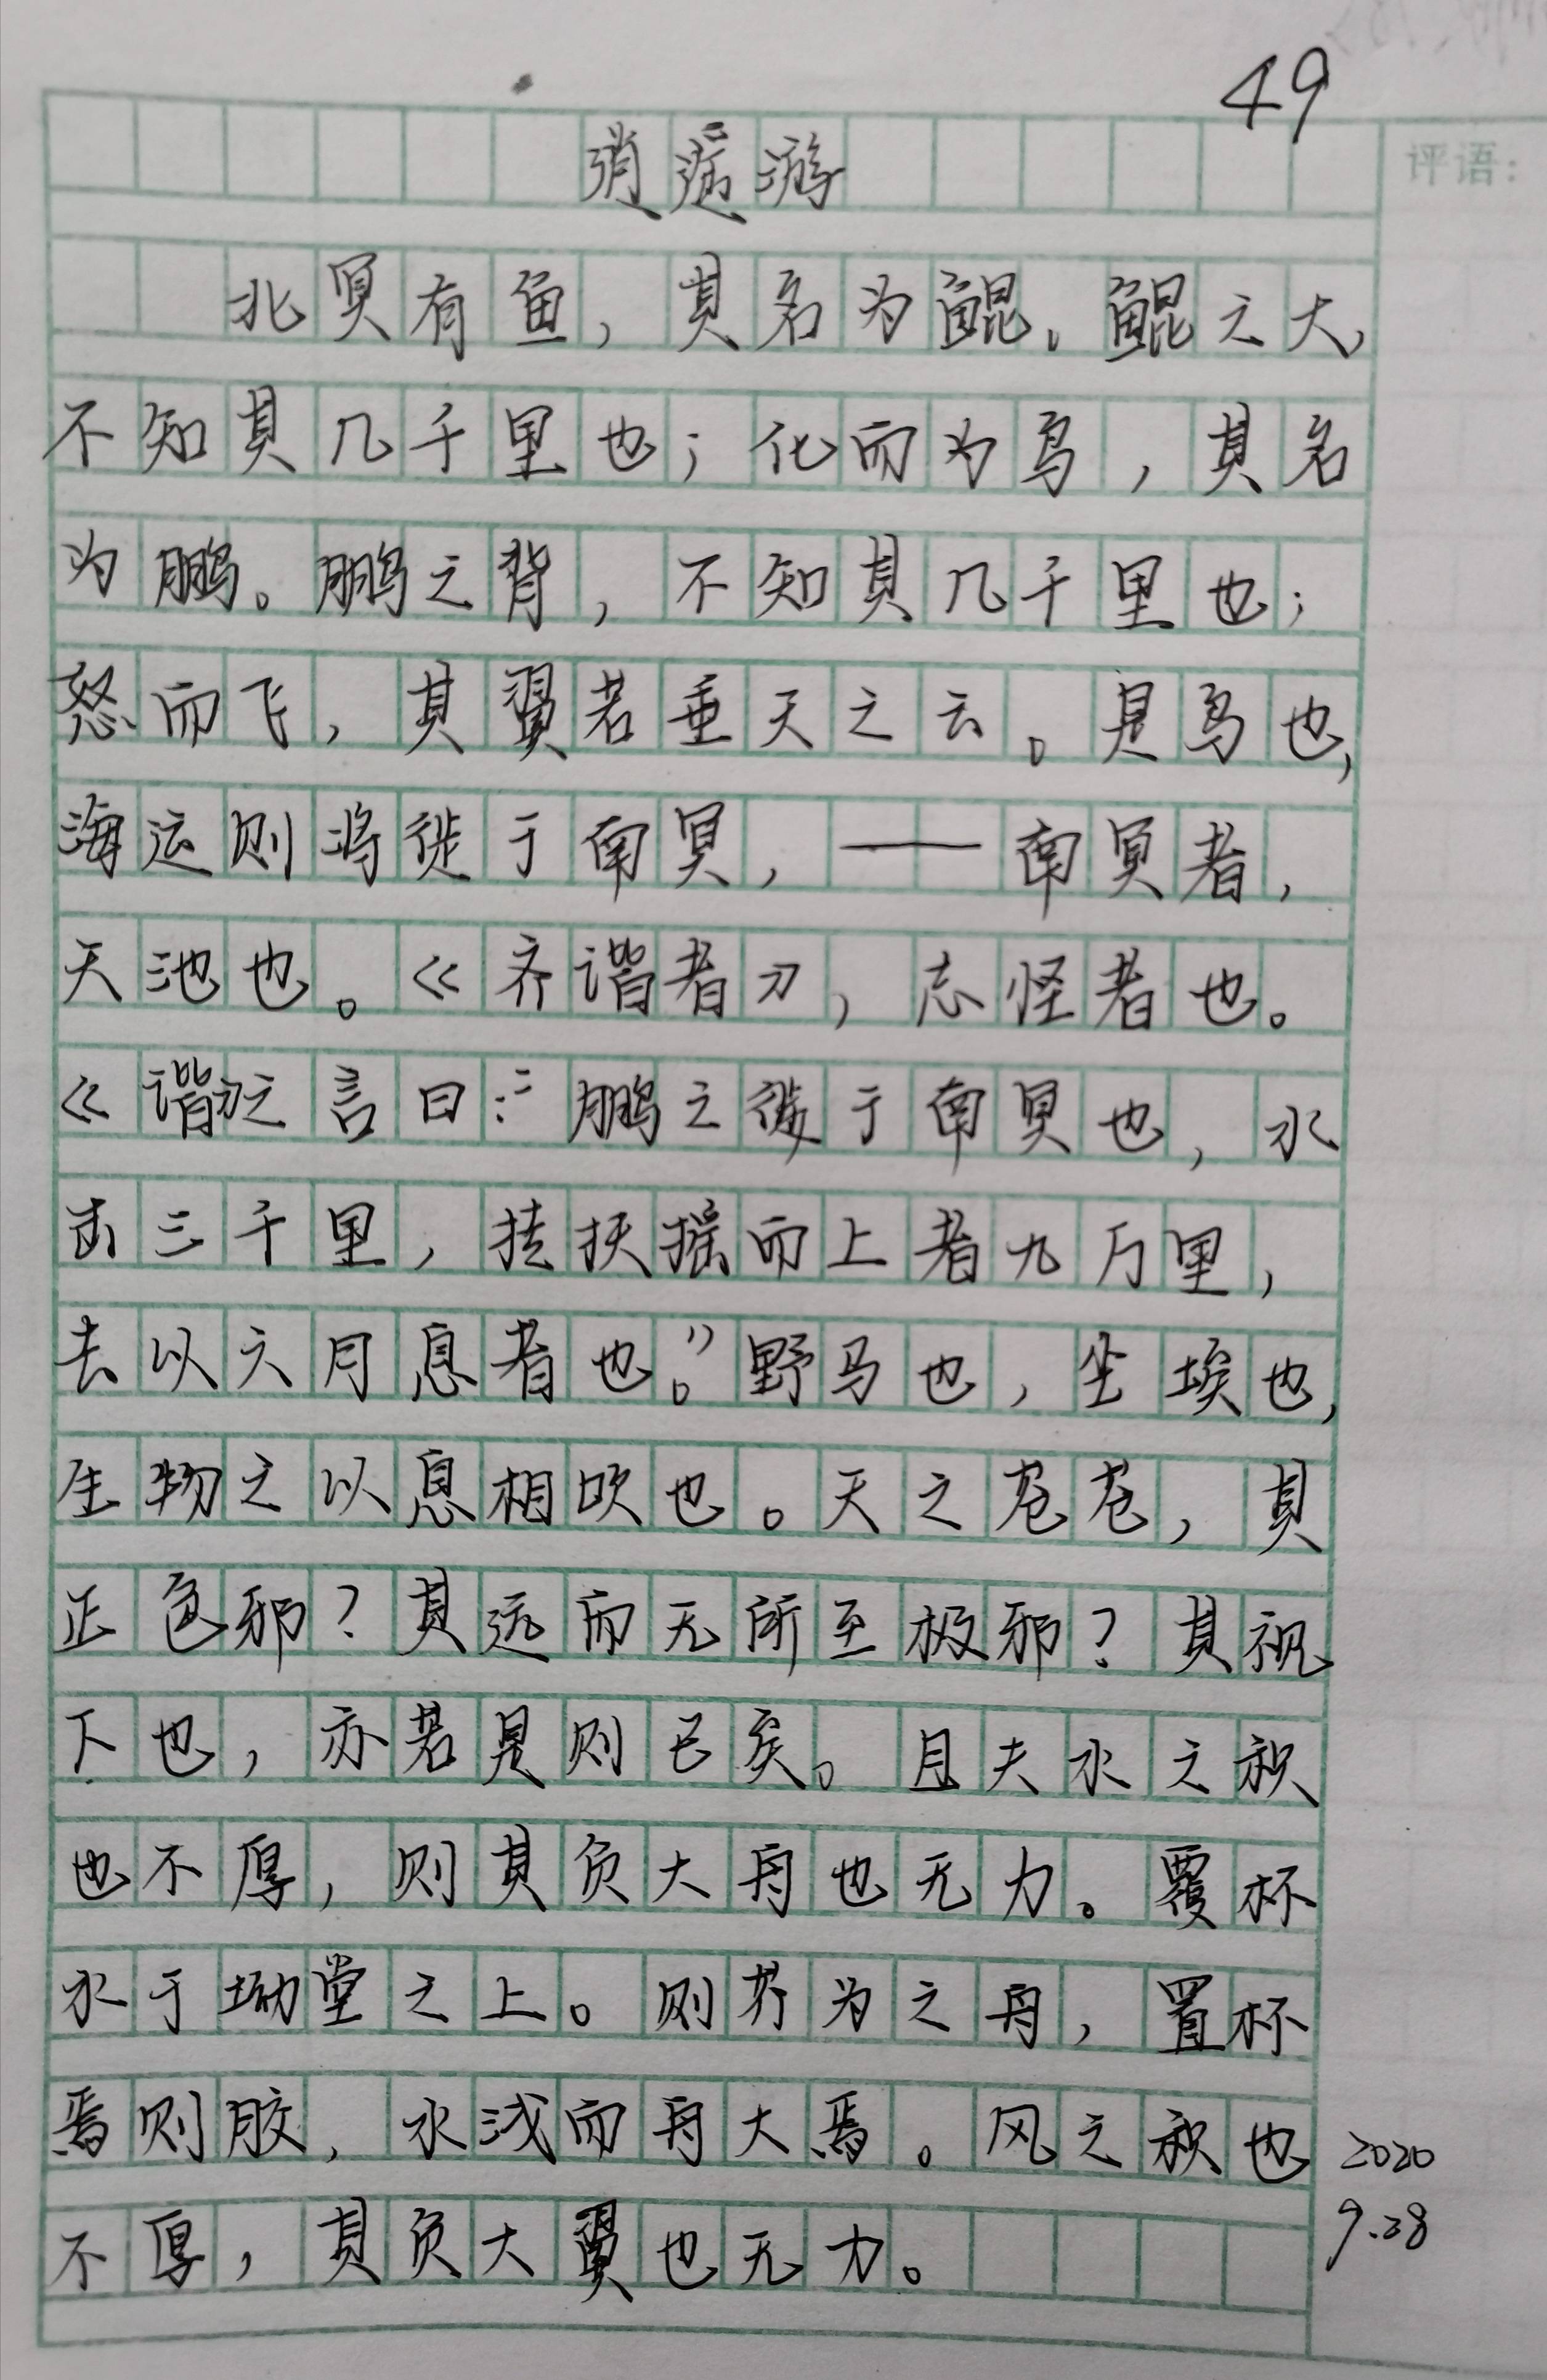 49
逍遥游
评语：
北冥有鱼，其名为鲲。鲲之大，
不知其几千里也；化而为鸟，其名
为鹏。鹏之背，不知其几千里也；
怒而飞，其翼若垂天之云。是鸟也，
海运则将徙于南冥，——南冥者，
天池也。《齐谐者》，志怪者也。
《谐》之言曰：“鹏之徙于南冥也，水
击三千里，抟扶摇而上者九万里，
去以六月息者也。”野马也，尘埃也，
生物之以息相吹也。天之苍苍，其
正色邪？其远而无所至极邪？其视
下也，亦若是则已矣。且夫水之积
也不厚，则其负大舟也无力。覆杯
水于坳堂之上。则芥为之舟，置杯
焉则胶，水浅而舟大焉。风之积也
不厚，其负大翼也无力。
2020
9.28